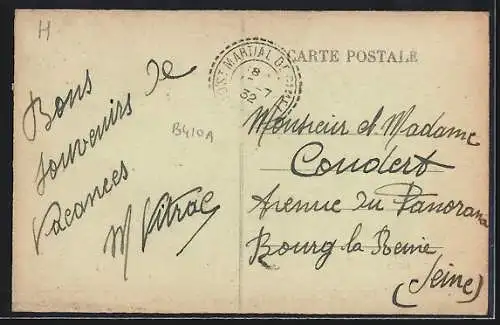 H
CARTE POSTALE
ST MARTIAL DE
18
Bons
de
souvenirs
Vacances
M Vitrac
B410A
Monsieur et Madame
Coudert
Avenue du Panorama
Bourg la Reine
(Seine)